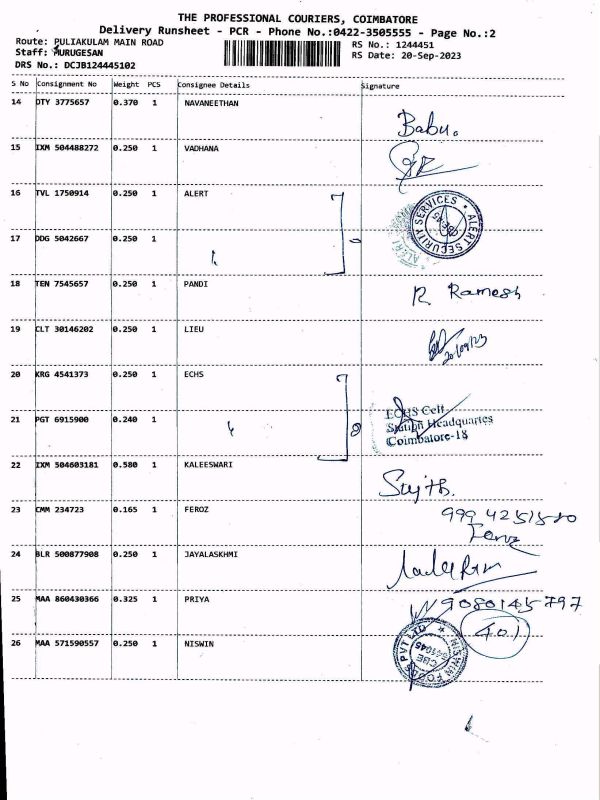 THE PROFESSIONAL COURIERS, COIMBATORE
Delivery Runsheet - PCR - Phone No.:0422-3505555 - Page No.:2
Route: PULIAKULAM MAIN ROAD
Staff: MURUGESAN
DRS No.: DCJB124445102
RS No.: 1244451
RS Date: 20-Sep-2023
S No Consignment No Weight PCS Consignee Details Signature
14 DTY 3775657 0.370 1 NAVANEETHAN
Babu.
15 IXM 504488272 0.250 1 VADHANA
16 TVL 1750914 0.250 1 ALERT
ALERT SECURITY SERVICES
17 DDG 5042667 0.250 1
18 TEN 7545657 0.250 1 PANDI
R. Ramesh
19 CLT 30146202 0.250 1 LIEU
20/09/23
20 KRG 4541373 0.250 1 ECHS
ECHS Cell
Station Headquarters
Coimbatore-18
21 PGT 6915900 0.240 1
22 IXM 504603181 0.580 1 KALEESWARI
Sujth.
23 CMM 234723 0.165 1 FEROZ
24 BLR 500877908 0.250 1 JAYALASKHMI
25 MAA 860430366 0.325 1 PRIYA
9080145797
401
26 MAA 571590557 0.250 1 NISWIN
NISWIN FOODS PVT LTD
CBE
641045